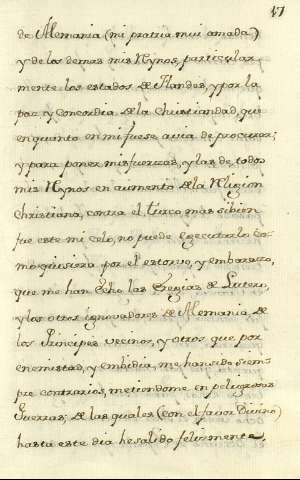 17
de Alemania (mi patria mui amada)
y de los demas mis Rynos, particular
mente los estados de Flandes, y por la
paz y Concordia de la Christiandad, que
en quanto en mi fuese avia de procurar;
y para poner mis fuerzas, y las de todos
mis Rynos en aumento de la Religion
Christiana, contra el turco mas si bien
fue este mi celo, no puede egecutarlo co-
mo quisiera por el estorvo, y embarazo,
que me han echo las Eregias de Lutero,
y los otros ignovadores de Alemania, de
los Principes vecinos, y otros que por
enemistad, y embidia, me han sido siem
pre contrarios, metiendome en peligrosas
Guerras; de las quales (con el favor Divino)
hasta este dia he salido felizmente,